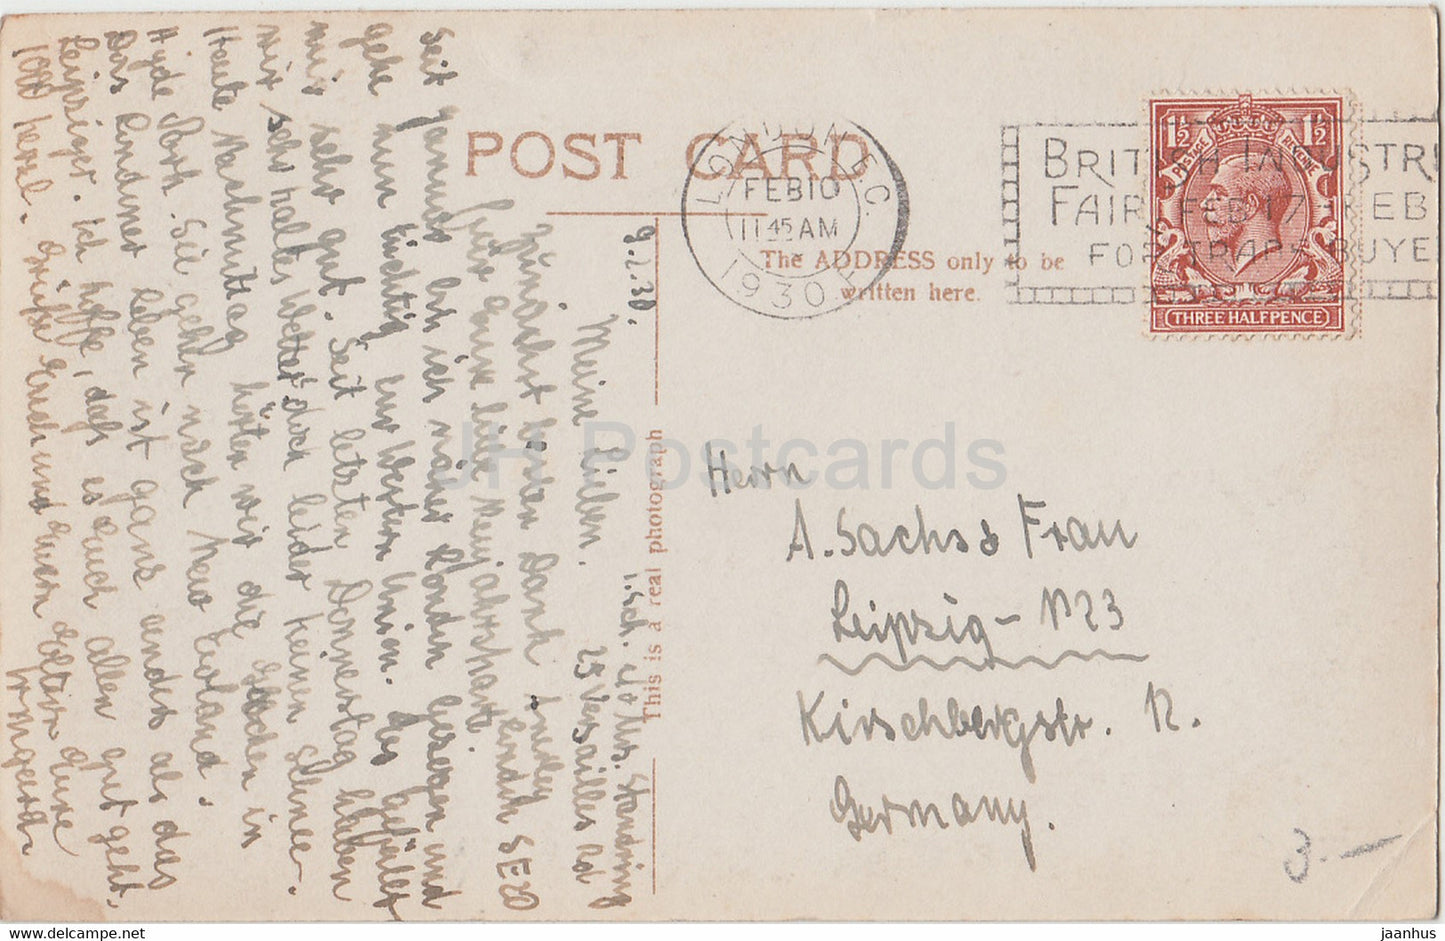 POST CARD
The ADDRESS only to be
written here.
This is a real photograph
LONDON. E.C.
FEB 10
11 45 AM
1930
BRITISH INDUSTR
FAIR FEB 17 FEB
FOR TRADE BUYE
1½ 1½
POSTAGE REVENUE
THREE HALFPENCE
Herrn
A. Sachs & Frau
Leipzig - N23
Kirschbergstr. 12.
Germany.
9.2.30. Mrs. Standring
25 Versailles Rd
London SE20
Meine Lieben.
Zunächst besten Dank
für Eure liebe Neujahrskarte.
Seit Januar bin ich näher London gezogen und
gehe nun tüchtig zur Western Union. Es gefällt
mir sehr gut. Seit letzten Donnerstag haben
wir sehr kaltes Wetter doch leider keinen Schnee.
Heute Nachmittag hörten wir die in
Hyde Park. Sie gehn nach New Zealand.
Das Londoner Leben ist ganz anders als das
Leipziger. Ich hoffe, dass es Euch allen gut geht.
1000 herzl. Grüße Euch und Euern Eltern Eure
Irmgard
3.-
JH Postcards
delcampe.net
jaanhus